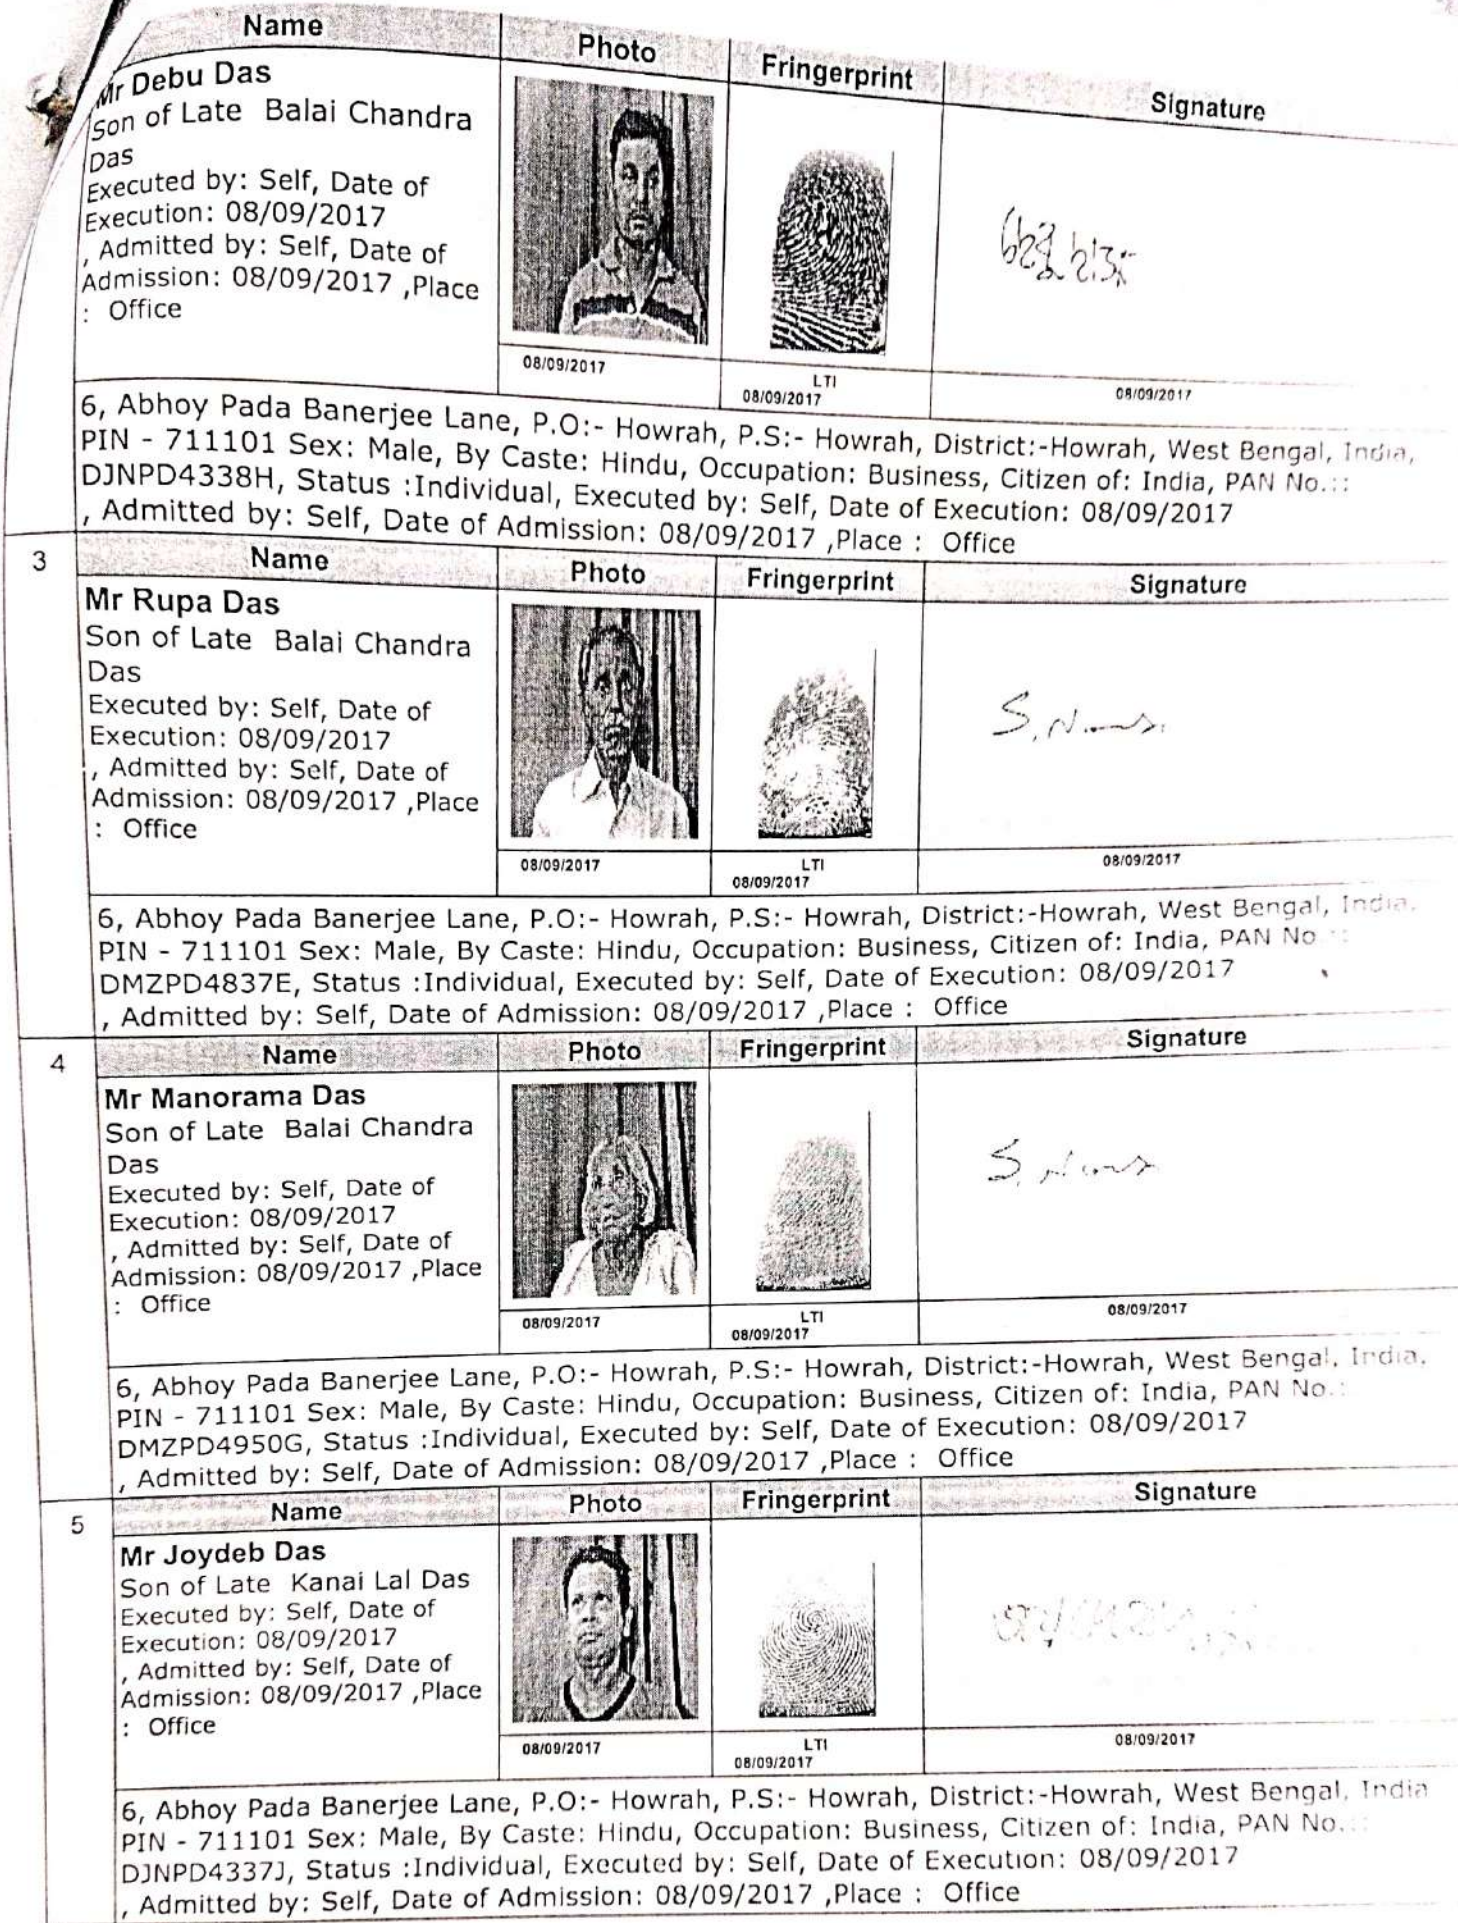 Name Photo Fringerprint Signature
Mr Debu Das
Son of Late Balai Chandra
Das
Executed by: Self, Date of
Execution: 08/09/2017
, Admitted by: Self, Date of
Admission: 08/09/2017 ,Place
: Office
08/09/2017
LTI
08/09/2017
08/09/2017
6, Abhoy Pada Banerjee Lane, P.O:- Howrah, P.S:- Howrah, District:-Howrah, West Bengal, India,
PIN - 711101 Sex: Male, By Caste: Hindu, Occupation: Business, Citizen of: India, PAN No.::
DJNPD4338H, Status :Individual, Executed by: Self, Date of Execution: 08/09/2017
, Admitted by: Self, Date of Admission: 08/09/2017 ,Place : Office
3 Name Photo Fringerprint Signature
Mr Rupa Das
Son of Late Balai Chandra
Das
Executed by: Self, Date of
Execution: 08/09/2017
, Admitted by: Self, Date of
Admission: 08/09/2017 ,Place
: Office
08/09/2017
LTI
08/09/2017
08/09/2017
6, Abhoy Pada Banerjee Lane, P.O:- Howrah, P.S:- Howrah, District:-Howrah, West Bengal, India,
PIN - 711101 Sex: Male, By Caste: Hindu, Occupation: Business, Citizen of: India, PAN No.::
DMZPD4837E, Status :Individual, Executed by: Self, Date of Execution: 08/09/2017
, Admitted by: Self, Date of Admission: 08/09/2017 ,Place : Office
4 Name Photo Fringerprint Signature
Mr Manorama Das
Son of Late Balai Chandra
Das
Executed by: Self, Date of
Execution: 08/09/2017
, Admitted by: Self, Date of
Admission: 08/09/2017 ,Place
: Office
08/09/2017
LTI
08/09/2017
08/09/2017
6, Abhoy Pada Banerjee Lane, P.O:- Howrah, P.S:- Howrah, District:-Howrah, West Bengal, India,
PIN - 711101 Sex: Male, By Caste: Hindu, Occupation: Business, Citizen of: India, PAN No.:
DMZPD4950G, Status :Individual, Executed by: Self, Date of Execution: 08/09/2017
, Admitted by: Self, Date of Admission: 08/09/2017 ,Place : Office
5 Name Photo Fringerprint Signature
Mr Joydeb Das
Son of Late Kanai Lal Das
Executed by: Self, Date of
Execution: 08/09/2017
, Admitted by: Self, Date of
Admission: 08/09/2017 ,Place
: Office
08/09/2017
LTI
08/09/2017
08/09/2017
6, Abhoy Pada Banerjee Lane, P.O:- Howrah, P.S:- Howrah, District:-Howrah, West Bengal, India
PIN - 711101 Sex: Male, By Caste: Hindu, Occupation: Business, Citizen of: India, PAN No.::
DJNPD4337J, Status :Individual, Executed by: Self, Date of Execution: 08/09/2017
, Admitted by: Self, Date of Admission: 08/09/2017 ,Place : Office